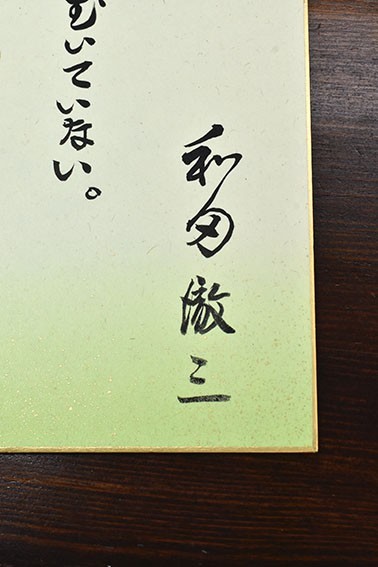 むいていない。
和田徹三